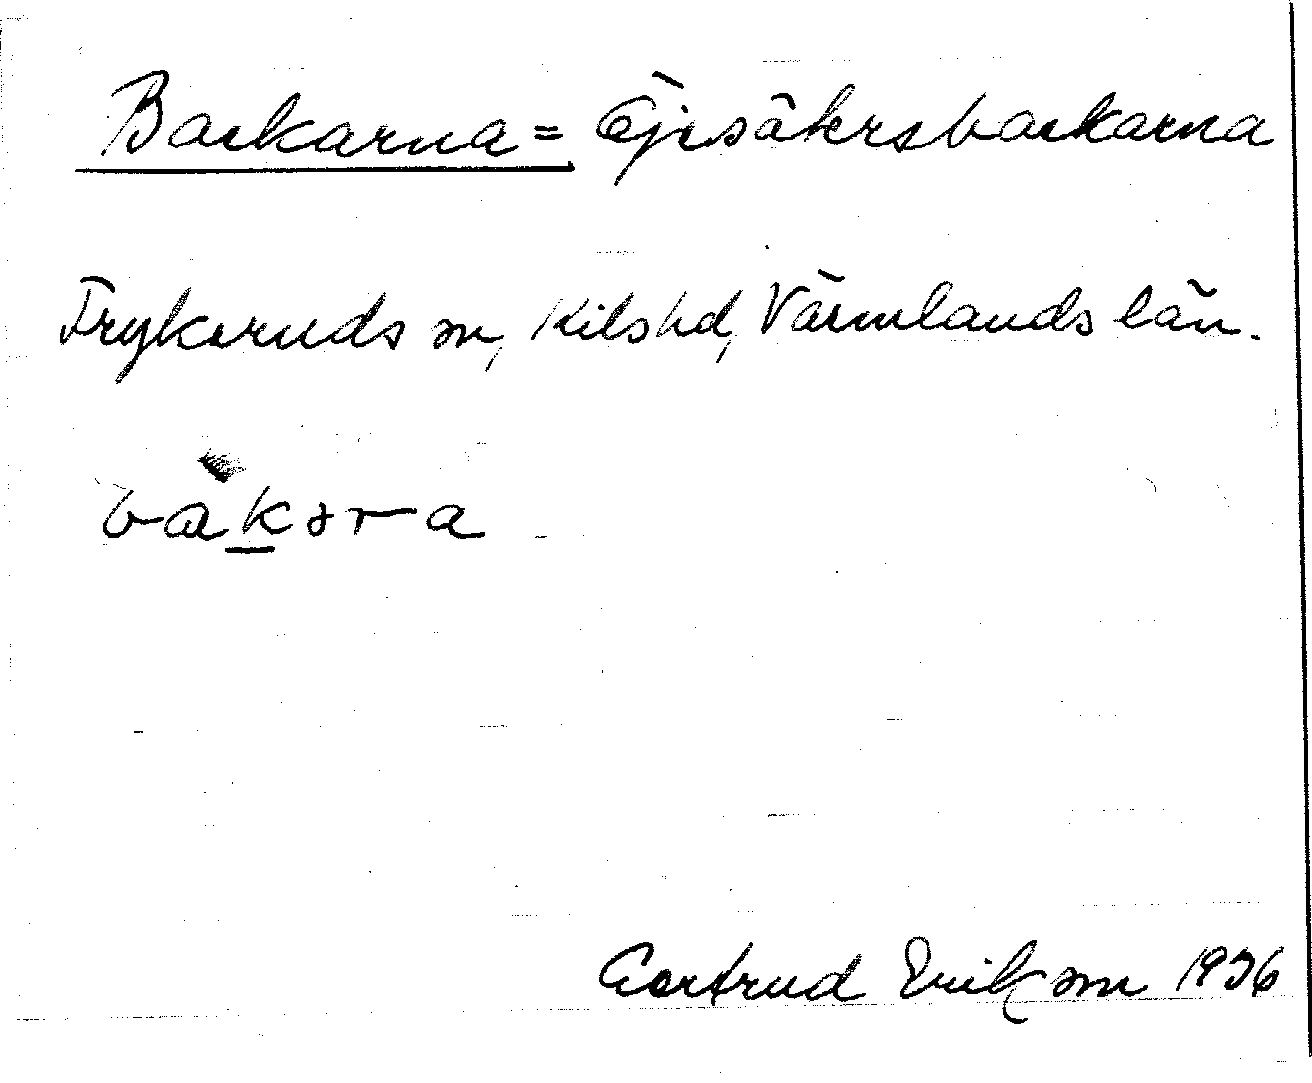 Backarna = Öjesäkersbackarna
Frykeruds sn, Kils hd, Värmlands län.
bàkəra
Gertrud Erikson 1936